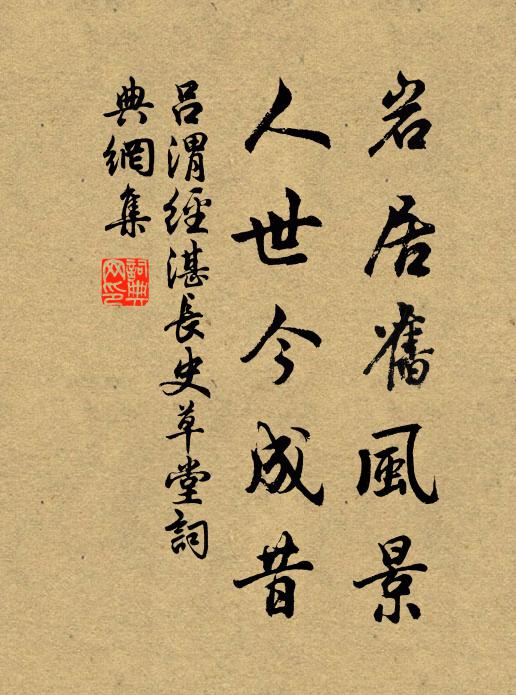 岩居舊風景
人世今成昔
呂渭經湛長史草堂詞
典網集
詞典
网印